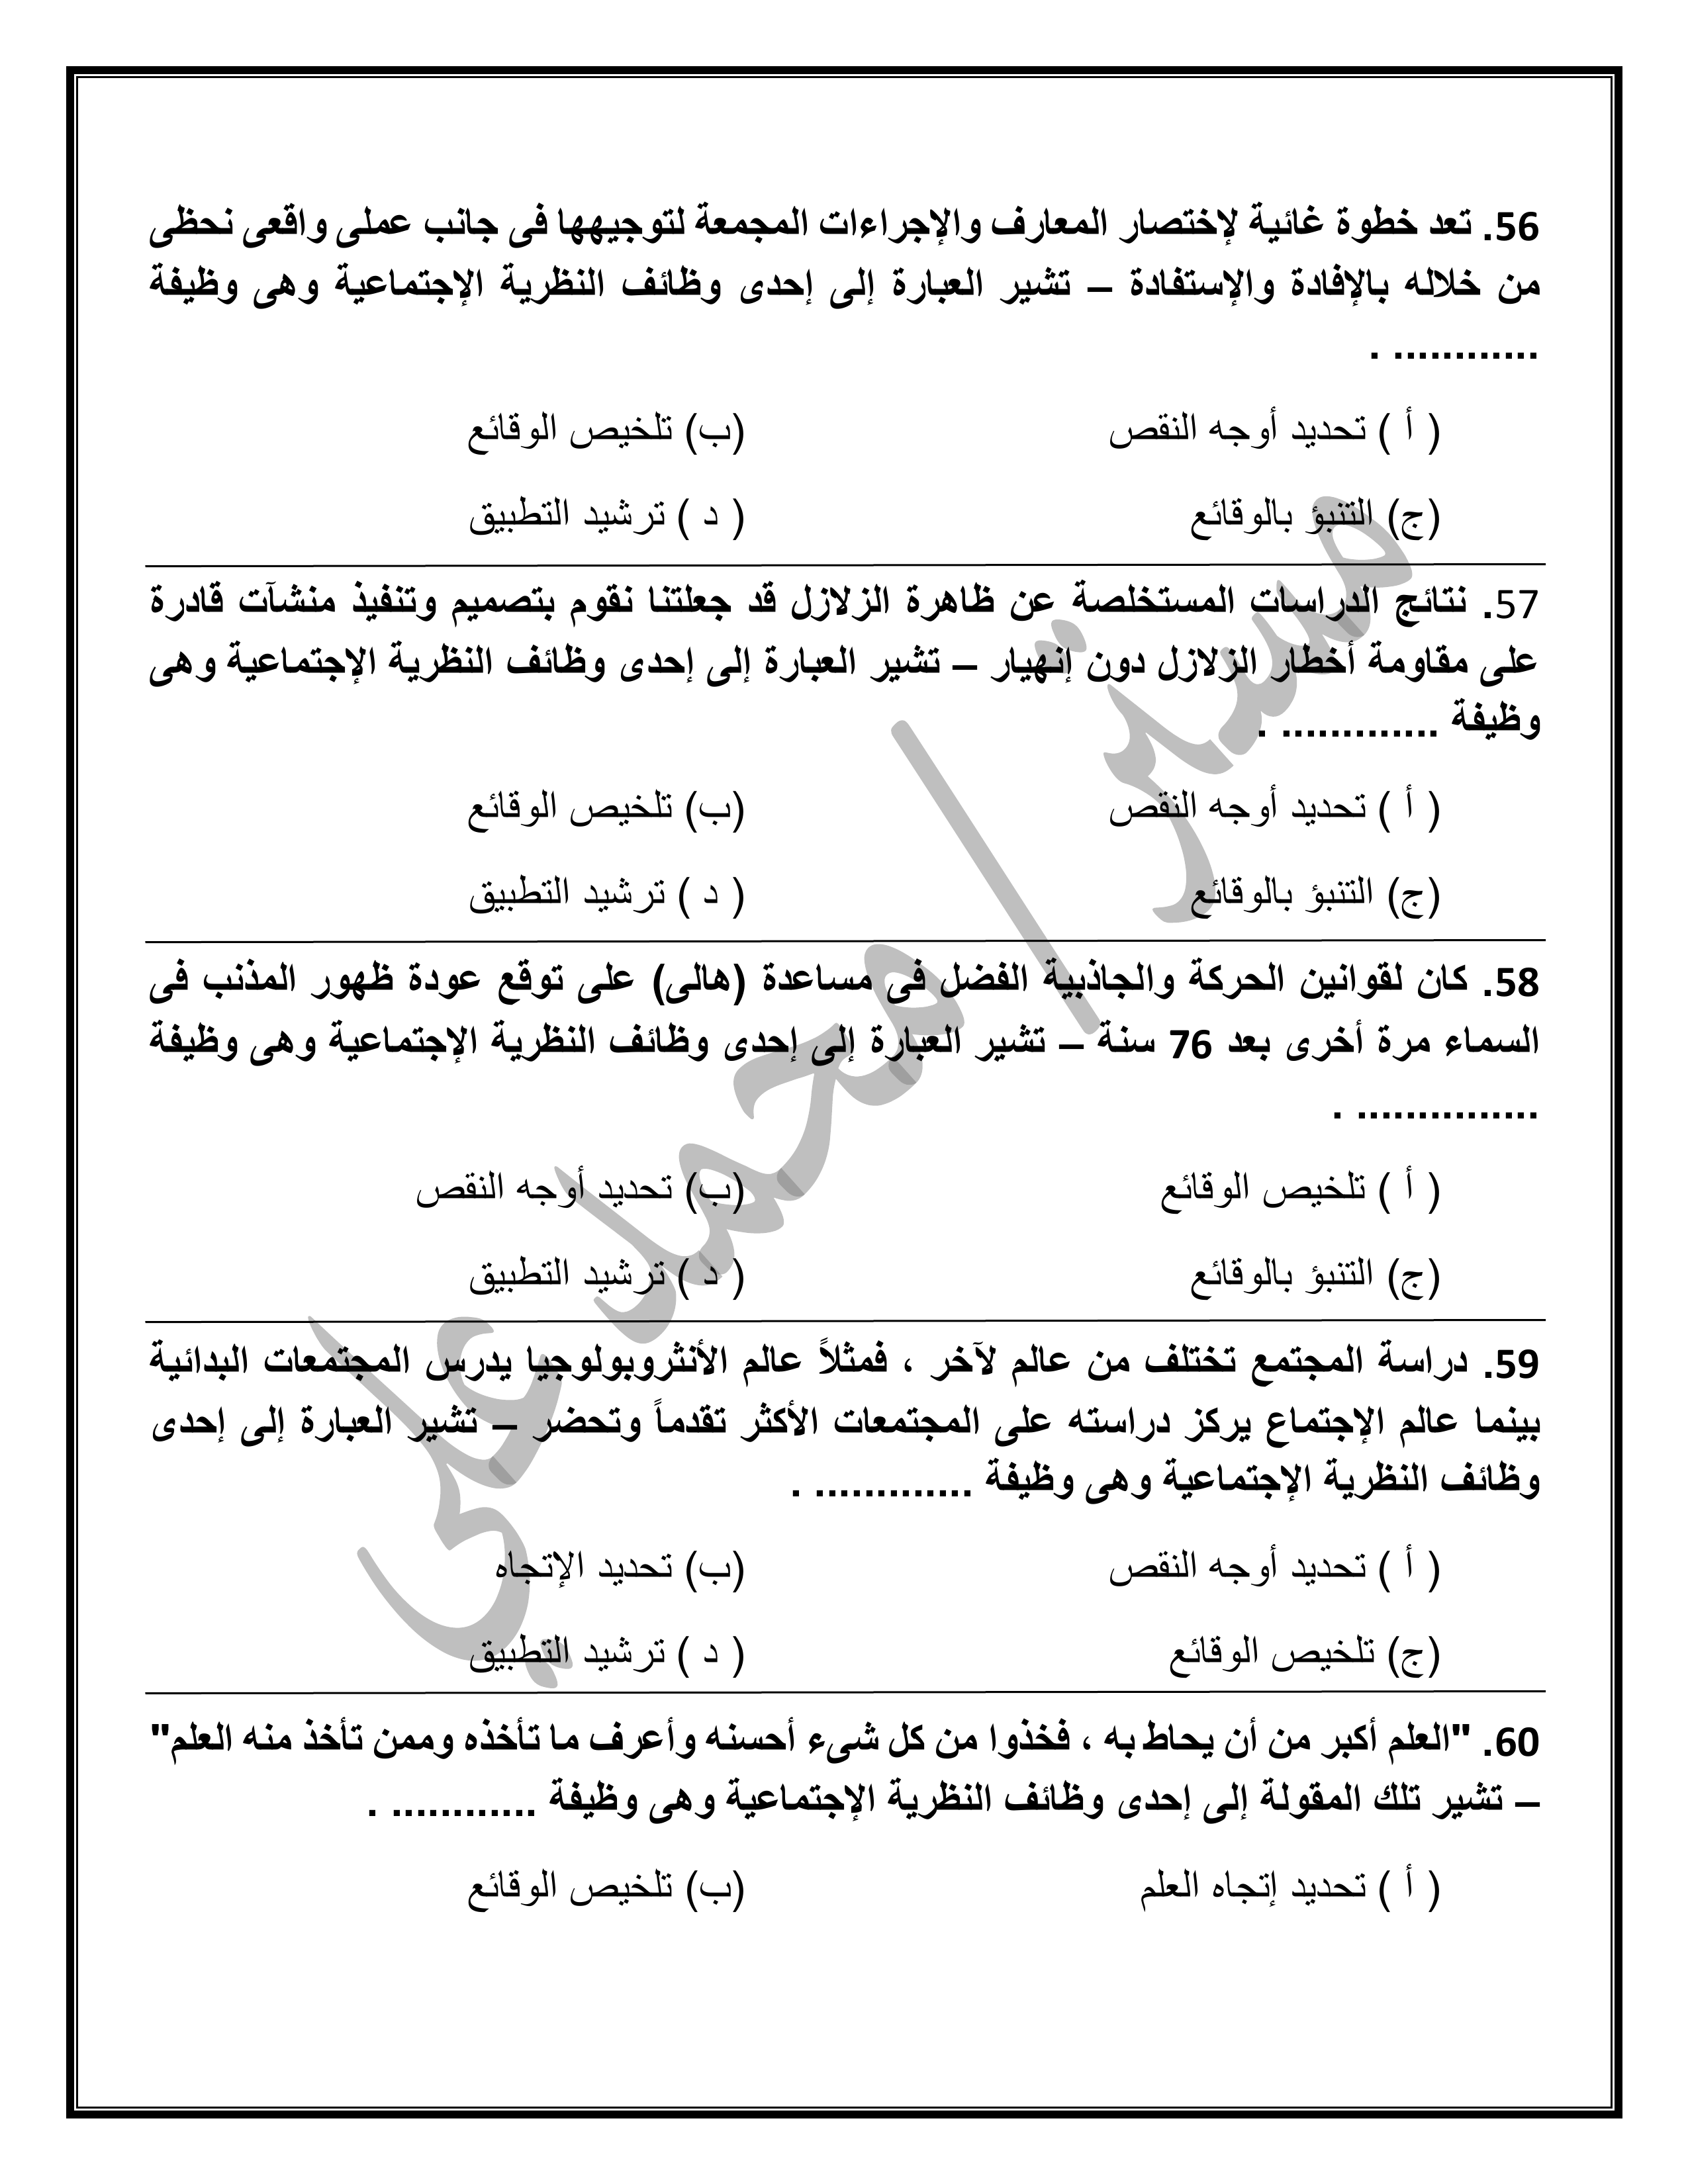 56. تعد خطوة غائية لإختصار المعارف والإجراءات المجمعة لتوجيهها فى جانب عملى واقعى نحظى
من خلاله بالإفادة والإستفادة – تشير العبارة إلى إحدى وظائف النظرية الإجتماعية وهى وظيفة
............ .
( أ ) تحديد أوجه النقص (ب) تلخيص الوقائع
(ج) التنبؤ بالوقائع ( د ) ترشيد التطبيق
57. نتائج الدراسات المستخلصة عن ظاهرة الزلازل قد جعلتنا نقوم بتصميم وتنفيذ منشآت قادرة
على مقاومة أخطار الزلازل دون إنهيار – تشير العبارة إلى إحدى وظائف النظرية الإجتماعية وهى
وظيفة ............. .
( أ ) تحديد أوجه النقص (ب) تلخيص الوقائع
(ج) التنبؤ بالوقائع ( د ) ترشيد التطبيق
58. كان لقوانين الحركة والجاذبية الفضل فى مساعدة (هالى) على توقع عودة ظهور المذنب فى
السماء مرة أخرى بعد 76 سنة – تشير العبارة إلى إحدى وظائف النظرية الإجتماعية وهى وظيفة
............... .
( أ ) تلخيص الوقائع (ب) تحديد أوجه النقص
(ج) التنبؤ بالوقائع ( د ) ترشيد التطبيق
59. دراسة المجتمع تختلف من عالم لآخر ، فمثلاً عالم الأنثروبولوجيا يدرس المجتمعات البدائية
بينما عالم الإجتماع يركز دراسته على المجتمعات الأكثر تقدماً وتحضر – تشير العبارة إلى إحدى
وظائف النظرية الإجتماعية وهى وظيفة ............. .
( أ ) تحديد أوجه النقص (ب) تحديد الإتجاه
(ج) تلخيص الوقائع ( د ) ترشيد التطبيق
60. "العلم أكبر من أن يحاط به ، فخذوا من كل شىء أحسنه وأعرف ما تأخذه وممن تأخذ منه العلم"
– تشير تلك المقولة إلى إحدى وظائف النظرية الإجتماعية وهى وظيفة ............ .
( أ ) تحديد إتجاه العلم (ب) تلخيص الوقائع
مستر/محمد على